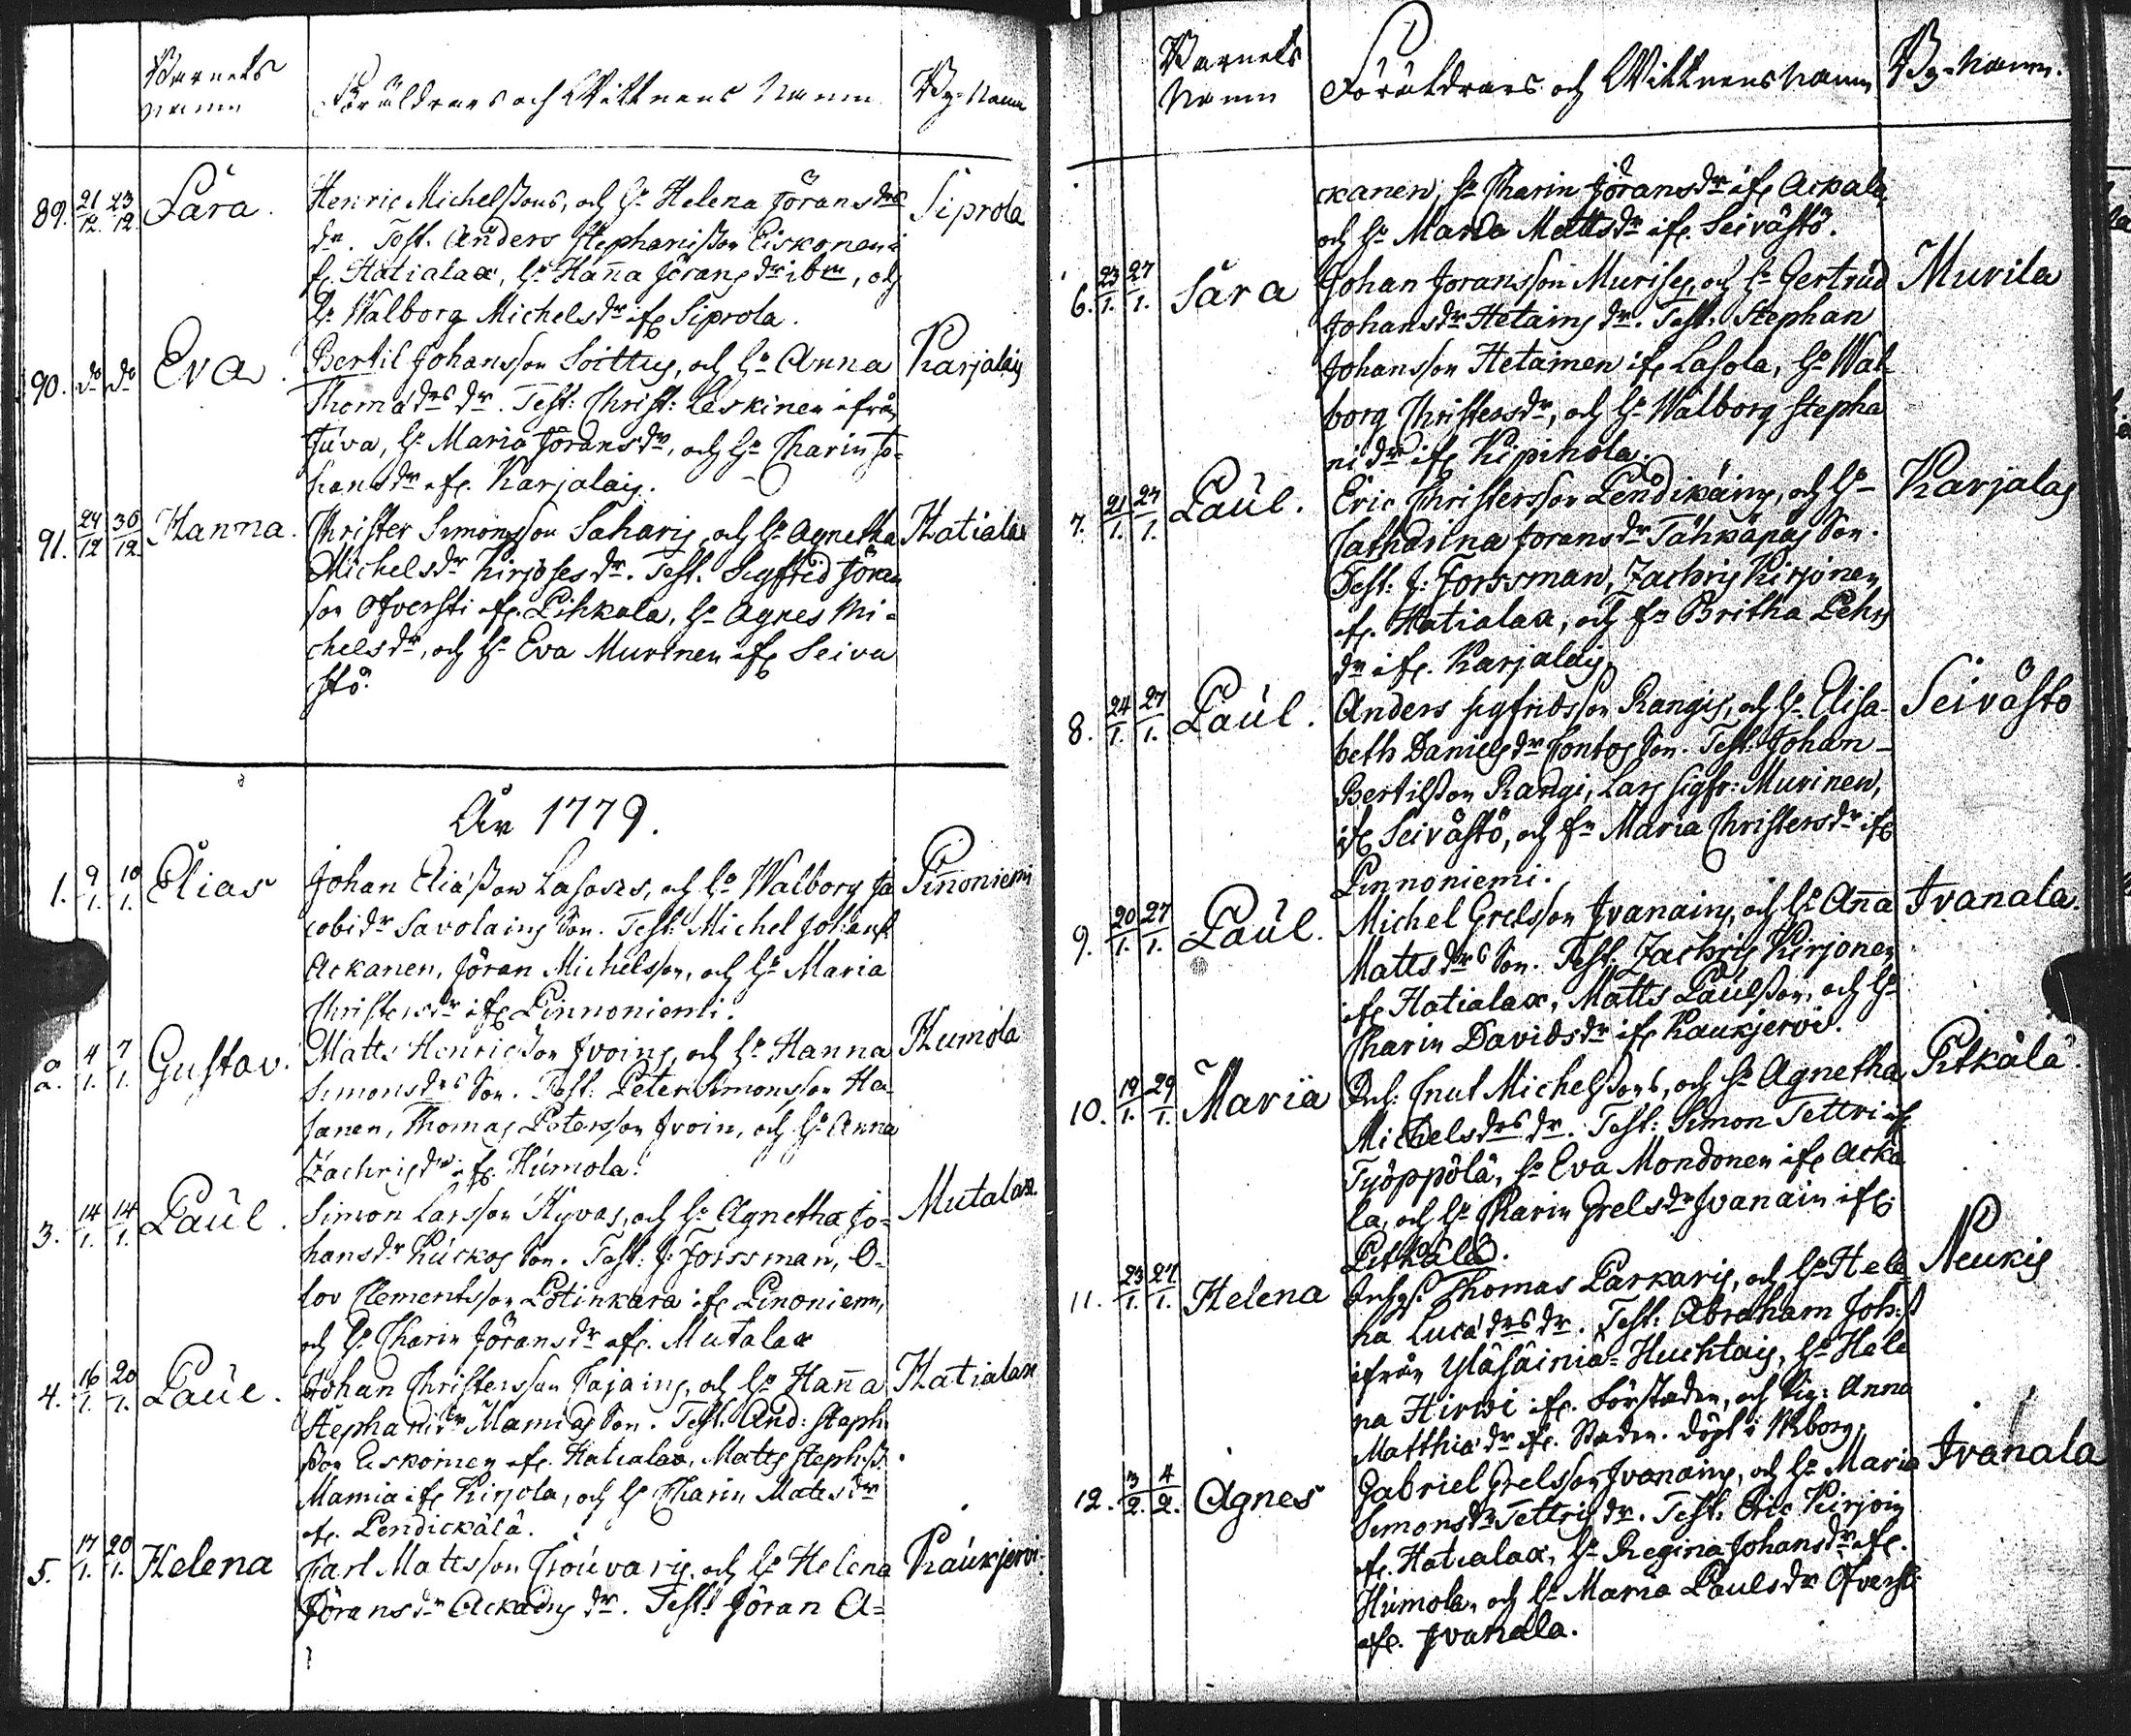 Barnets
namn
Föräldrars och Wittnens Namn
By-Namn
89. 21/12. 23/12 Sara.
Henric Michelssons, och h: Helena Jöransdrs
dr. Test. Anders Stephanisson Eiskonen i
fr. Hatialax, h: Hanna Jörans dr ibm, och
h: Walborg Michelsdr ifr Siprola.
Siprola
90. do do Eva.
Bertil Johansson Soittus, och h: Anna
Thomædrs dr. Test: Christ: Leskinen ifrån
Juva, h: Maria Jöransdr, och h: Charin Jo-
hansdr ifr. Karjalais.
Karjalais
91. 24/12 30/12 Hanna.
Christer Simonsson Saharis, och h: Agnetha
Michelsdr Kirjoses dr. Test. Sigfrid Jöran
son Ofversti ifr. Pihkala, h: Agnes Mi-
chelsdr, och h: Eva Murinen ifr Seiva
stö.
Hatialax
År 1779.
1. 9/1. 10/1. Elias
Johan Eliæsson Lasoses, och h: Walborg Ja
cobidr Savolains Son. Test: Michel Johanss
Ackanen, Jöran Michelsson, och h: Maria
Christersdr ifr Pinnoniemi.
Pinnoniemi
2. 4/1. 7/1. Gustav.
Matts Henricsson Ivoins, och h: Hanna
Simonsdrs Son. Test: Peter Simonsson Ha-
janen, Thomas Petersson Ivoin, och h: Anna
Zachrisdr ifr. Humola.
Humola
3. 14/1. 14/1. Paul.
Simon Larsson Hyvas, och h: Agnetha Jo-
hansdr Kuckos Son. Test: J: Forssman, O-
lov Clementsson Potinkara ifr Pinoniemi,
och h: Charin Jöransdr ifr. Mutalax
Mutalax.
4. 16/1. 20/1. Paul.
Johan Christersson Pajains, och h: Hanna
Stephanidr Mamias Son. Test: And: Steph:
sson Eskonen ifr. Hatialax, Matts Stephss.
Mamia ifr Kirjola, och h: Charin Matesdr
ifr. Pendickälä.
Hatialax
5. 17/1. 20/1. Helena
Carl Matesson Trouvaris, och h: Helena
Jöransdr Ackains dr. Test: Jöran A-
Kaukjervi.
Barnets
Namn
Föräldrars och Wittnens Namn
By-Namn.
ckanen, h: Charin Jöransdr ifr Ackala,
och h: Maria Mattsdr ifr. Seivästö.
6. 23/1. 27/1. Sara
Johan Joransson Murises, och h: Gertrud
Johansdr Hetains dr. Test: Stephan
Johansson Hetainen ifr Lasola, h: Wal-
borg Christersdr, och h: Walborg Stepha
nidr ifr Kipinola.
Murila
7. 21/1. 27/1. Paul.
Eric Christersson Pendikäins, och h:
Catharina Joransdr Tähkäpas Son.
Test: J: Forssman, Zachris Kirjonen
ifr. Hatialax, och h: Britha Pehrs
dr ifr. Karjalais
Karjalas
8. 24/1. 27/1. Paul.
Anders Sigfridsson Rangis, och h: Elisa-
beth Daniels dr Contos Son. Test: Johan
Bertilsson Rangi, Lars Sigfr: Murinen,
ifr Seivästö, och h: Maria Christersdr ifr
Pinnoniemi.
Seivästö
9. 20/1. 27/1. Paul.
Michel Grelsson Ivanains, och h: Anna
Mattsdrs Son. Test: Zachris Kirjonen
ifr Hatialax, Matts Paulsson, och h:
Charin Davidsdr ifr Kaukjervi.
Ivanala.
10. 19/1. 29/1. Maria
Inh: Cnut Michelssons, och h: Agnetha
Michelsdrs dr. Test: Simon Tettri ifr
Työppölä, h: Eva Mondonen ifr Acka
la, och h: Charin Grelsdr Ivanain ifr
Pitkälä.
Pitkälä.
11. 23/1. 27/1. Helena
Inhys: Thomas Parkaris, och h: Hele
na Lucædrs dr. Test: Abraham Joh:ss
ifrån Yläsäiniä-Huchtais, h: Hele
na Hirvi ifr. Förstaden, och Pig: Anna
Matthiædr ifr. Staden. döpt i Wiborg.
Neukis
12. 3/2. 4/2. Agnes
Gabriel Grelsson Ivanains, och h: Maria
Simonsdr Tettris dr. Test: Eric Kirjoin
ifr. Hatialax, h: Regina Johansdr ifr.
Humola, och h: Maria Paulsdr Ofversti
ifr. Ivanala.
Ivanala